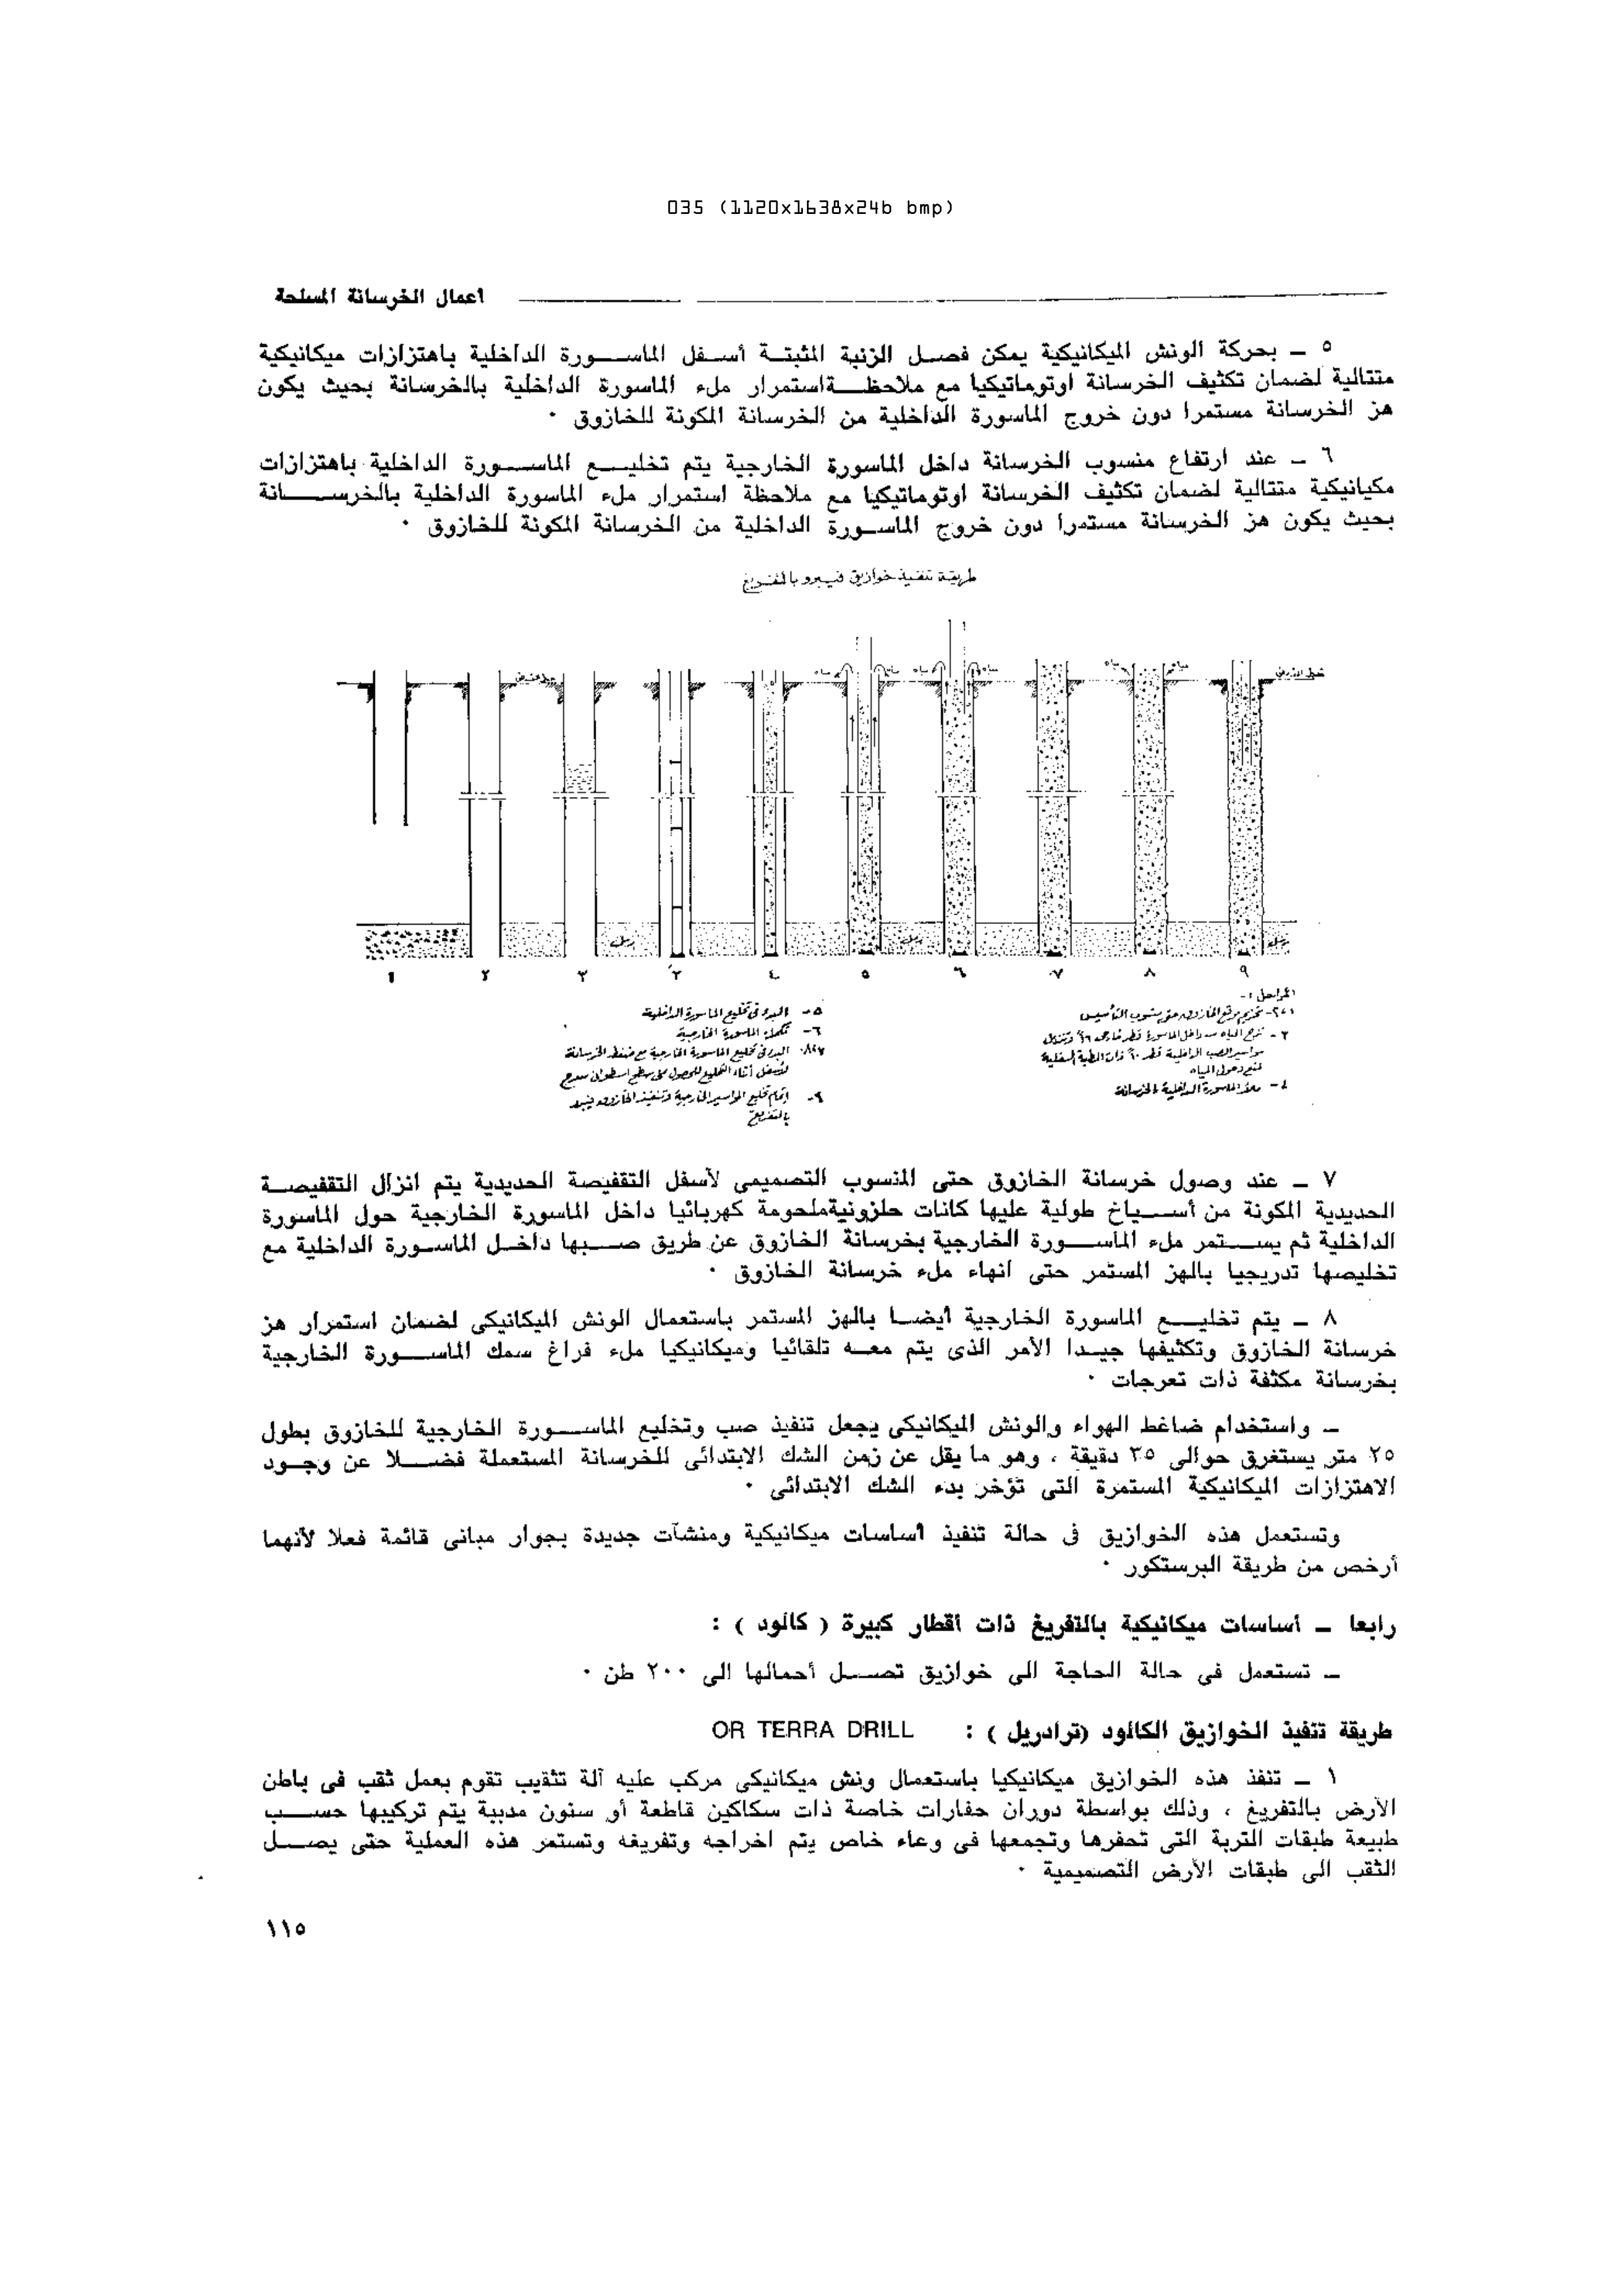 035 (1120x1638x24b bmp)
أعمال الخرسانة المسلحة
٥ – بحركة الونش الميكانيكية يمكن فصل الزنبة المثبتة أسفل الماسورة الداخلية باهتزازات ميكانيكية
متتالية لضمان تكثيف الخرسانة اوتوماتيكيا مع ملاحظة استمرار ملء الماسورة الداخلية بالخرسانة بحيث يكون
هز الخرسانة مستمرا دون خروج الماسورة الداخلية من الخرسانة المكونة للخازوق ٠
٦ – عند ارتفاع منسوب الخرسانة داخل الماسورة الخارجية يتم تخليع الماسورة الداخلية باهتزازات
مكيانيكية متتالية لضمان تكثيف الخرسانة اوتوماتيكيا مع ملاحظة استمرار ملء الماسورة الداخلية بالخرسانة
بحيث يكون هز الخرسانة مستمرا دون خروج الماسورة الداخلية من الخرسانة المكونة للخازوق ٠
طريقة تنفيذ خوازيق فيبرو بالتفريغ
١ ٢ ٣ ٣ ٤ ٥ ٦ ٧ ٨ ٩
المراحل :-
٤ – ملأ الماسورة الداخلية بالخرسانة
٥ – البدء فى تخليع الماسورة الداخلية
٦ – تكملة الماسورة الخارجية
٧،٨ البدء فى تخليع الماسورة الخارجية مع ضغط الخرسانة
لأسفل أثناء التخليع للحصول على سطح اسطوانى معرج
٩ – إتمام تخليع المواسير الخارجية وتنفيذ الخازوق فيبرو
بالتفريغ
٧ – عند وصول خرسانة الخازوق حتى المنسوب التصميمى لأسفل التقفيصة الحديدية يتم انزال التقفيصة
الحديدية المكونة من أسياخ طولية عليها كانات حلزونية ملحومة كهربائيا داخل الماسورة الخارجية حول الماسورة
الداخلية ثم يستمر ملء الماسورة الخارجية بخرسانة الخازوق عن طريق صبها داخل الماسورة الداخلية مع
تخليصها تدريجيا بالهز المستمر حتى انهاء ملء خرسانة الخازوق ٠
٨ – يتم تخليع الماسورة الخارجية أيضا بالهز المستمر باستعمال الونش الميكانيكى لضمان استمرار هز
خرسانة الخازوق وتكثيفها جيدا الأمر الذى يتم معه تلقائيا وميكانيكيا ملء فراغ سمك الماسورة الخارجية
بخرسانة مكثفة ذات تعرجات ٠
– واستخدام ضاغط الهواء والونش الميكانيكى يجعل تنفيذ صب وتخليع الماسورة الخارجية للخازوق بطول
٢٥ متر يستغرق حوالى ٣٥ دقيقة ، وهو ما يقل عن زمن الشك الابتدائى للخرسانة المستعملة فضلا عن وجود
الاهتزازات الميكانيكية المستمرة التى تؤخر بدء الشك الابتدائى ٠
وتستعمل هذه الخوازيق فى حالة تنفيذ أساسات ميكانيكية ومنشآت جديدة بجوار مبانى قائمة فعلا لأنهما
أرخص من طريقة البرستكور ٠
رابعا – أساسات ميكانيكية بالتفريغ ذات أقطار كبيرة ( كالود ) :
– تستعمل فى حالة الحاجة الى خوازيق تصل أحمالها الى ٢٠٠ طن ٠
طريقة تنفيذ الخوازيق الكالود (ترادريل ) : OR TERRA DRILL
١ – تنفذ هذه الخوازيق ميكانيكيا باستعمال ونش ميكانيكى مركب عليه آلة تثقيب تقوم بعمل ثقب فى باطن
الأرض بالتفريغ ، وذلك بواسطة دوران حفارات خاصة ذات سكاكين قاطعة أو سنون مدببة يتم تركيبها حسب
طبيعة طبقات التربة التى تحفرها وتجمعها فى وعاء خاص يتم اخراجه وتفريغه وتستمر هذه العملية حتى يصل
الثقب الى طبقات الأرض التصميمية ٠
١١٥